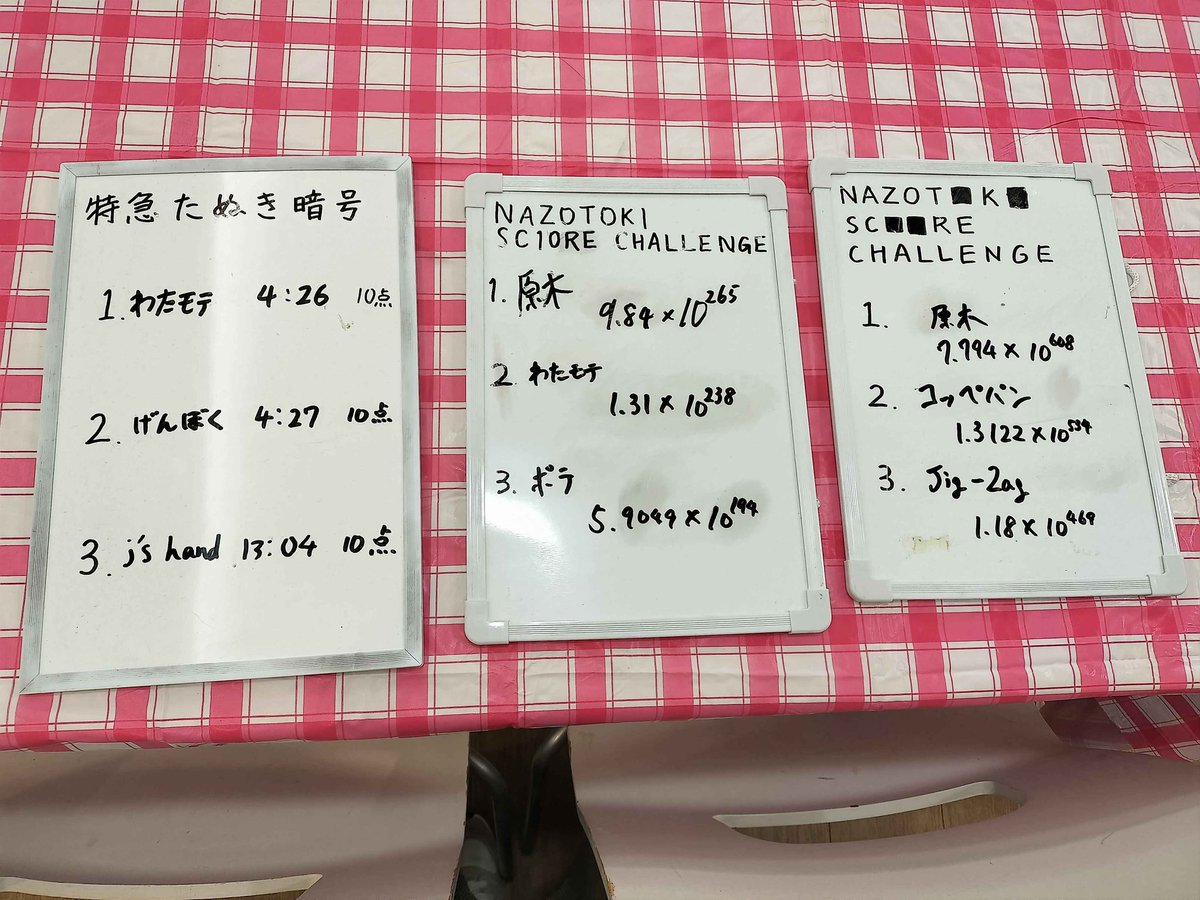 特急たぬき暗号
1. わたモテ 4:26 10点
2. げんぼく 4:27 10点
3. j's hand 13:04 10点
NAZOTOKI
SC10RE CHALLENGE
1. 原木
9.84×10^265
2. わたモテ
1.31×10^238
3. ポテ
5.9049×10^194
NAZOT■K■
SC■■RE
CHALLENGE
1. 原木
7.794×10^608
2. コッペパン
1.3122×10^534
3. Jig-Zag
1.18×10^469